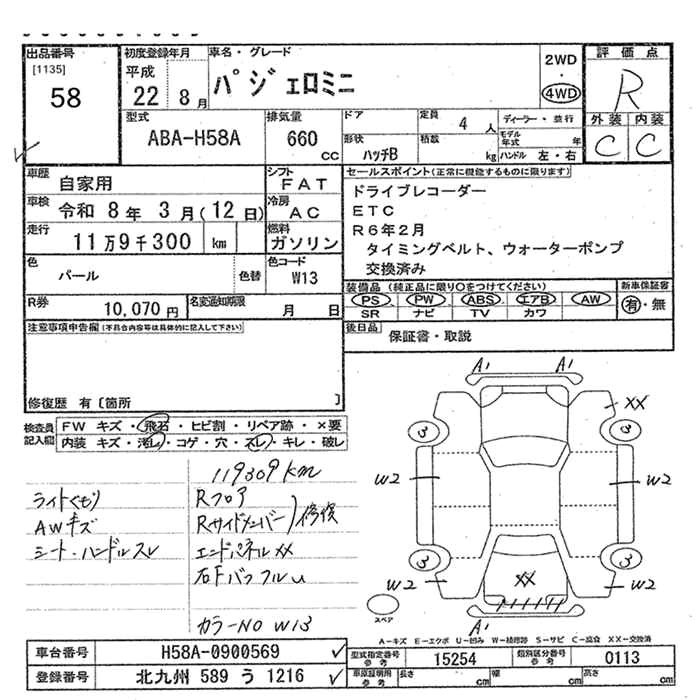 出品番号
[1135]
58
初度登録年月
平成
22 8 月
車名・グレード
パジェロミニ
2WD
・
4WD
評価点
R
型式
ABA-H58A
排気量
660
cc
ドア
形状
ハッチB
定員
4 人
積載
kg
ディーラー・並行
モデル年式 年
ハンドル 左・右
外装 内装
C C
車歴
自家用
シフト
FAT
車検
令和 8年 3月(12日)
冷房
AC
走行
11万9千300 km
燃料
ガソリン
色
パール
色替
色コード
W13
R券
10,070 円
名変通知期限
月 日
セールスポイント(正常に機能するものに限ります)
ドライブレコーダー
ETC
R6年2月
タイミングベルト、ウォーターポンプ
交換済み
装備品(純正品に限り○をつけてください)
PS PW ABS エアB AW
SR ナビ TV カワ
新車保証書
有・無
後日品
保証書・取説
注意事項申告欄(不具合内容等は具体的に記入して下さい)
修復歴 有〔箇所 〕
検査員記入欄
FW キズ・飛石・ヒビ割・リペア跡・×要
内装 キズ・汚れ・コゲ・穴・スレ・キレ・破レ
119309km
ライトくもり
AWキズ
シート・ハンドルスレ
Rフロア
Rサイドメンバー
修復
エンドパネルXX
右FバッフルU
カラーNO W13
A'
A'
XX
3
3
W2
W2
3
3
W2
W2
XX
A'
スペア
A-キズ E-エクボ U-凹み W-補修跡 S-サビ C-腐食 XX-交換済
車台番号
H58A-0900569
登録番号
北九州 589 う 1216
型式指定番号
参考
15254
類別区分番号
参考
0113
車庫証明用
参考
長さ
cm
幅
cm
高さ
cm